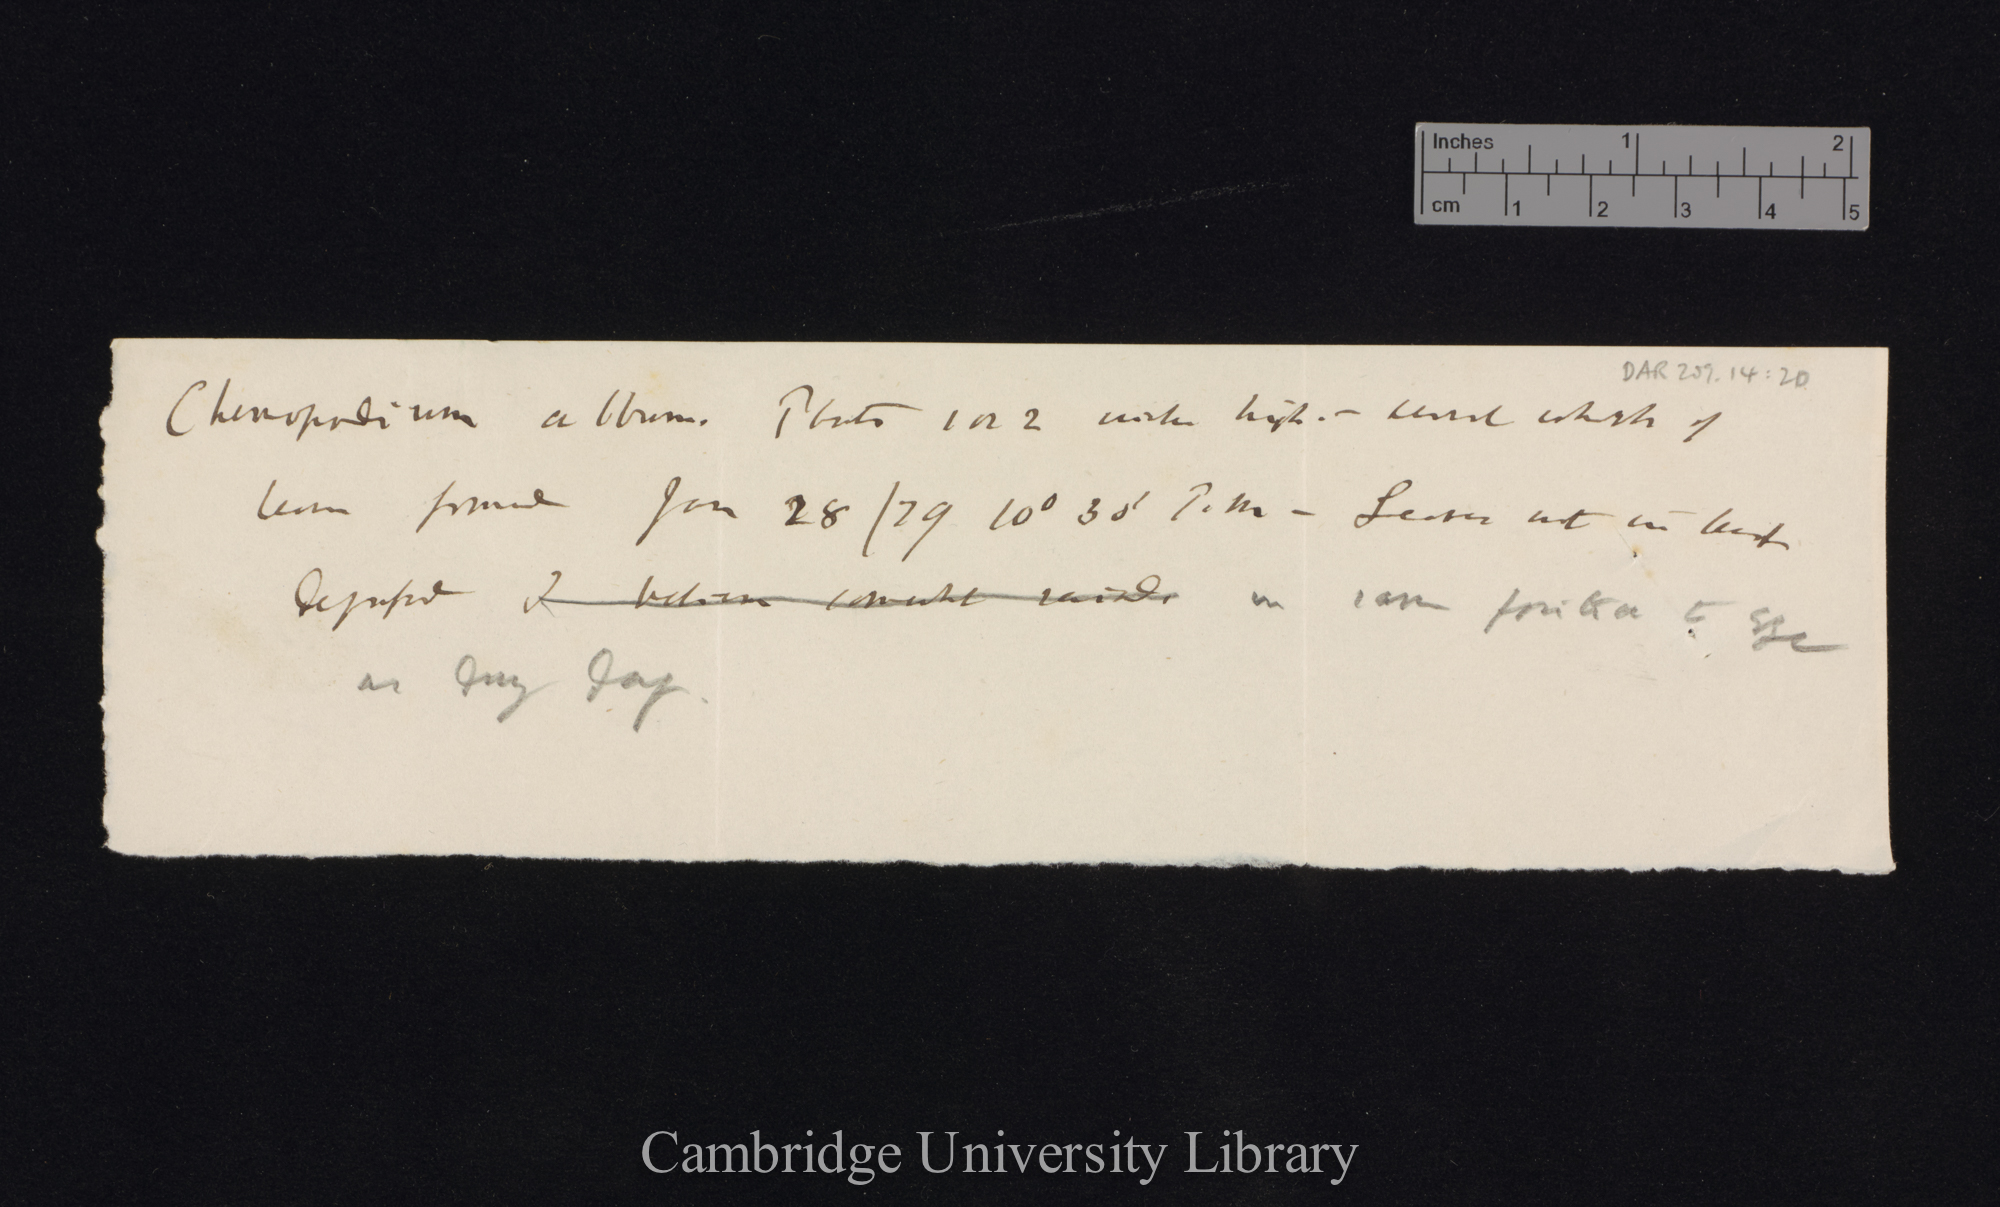 Inches 1 2
cm 1 2 3 4 5
DAR 209.14:20
Chenopodium album. Plants 1 or 2 inches high — several whorls of
leaves formed Jan 28/79 10° 30' P.m — Leaves not in least
depressed in same position to
as during day.
Cambridge University Library